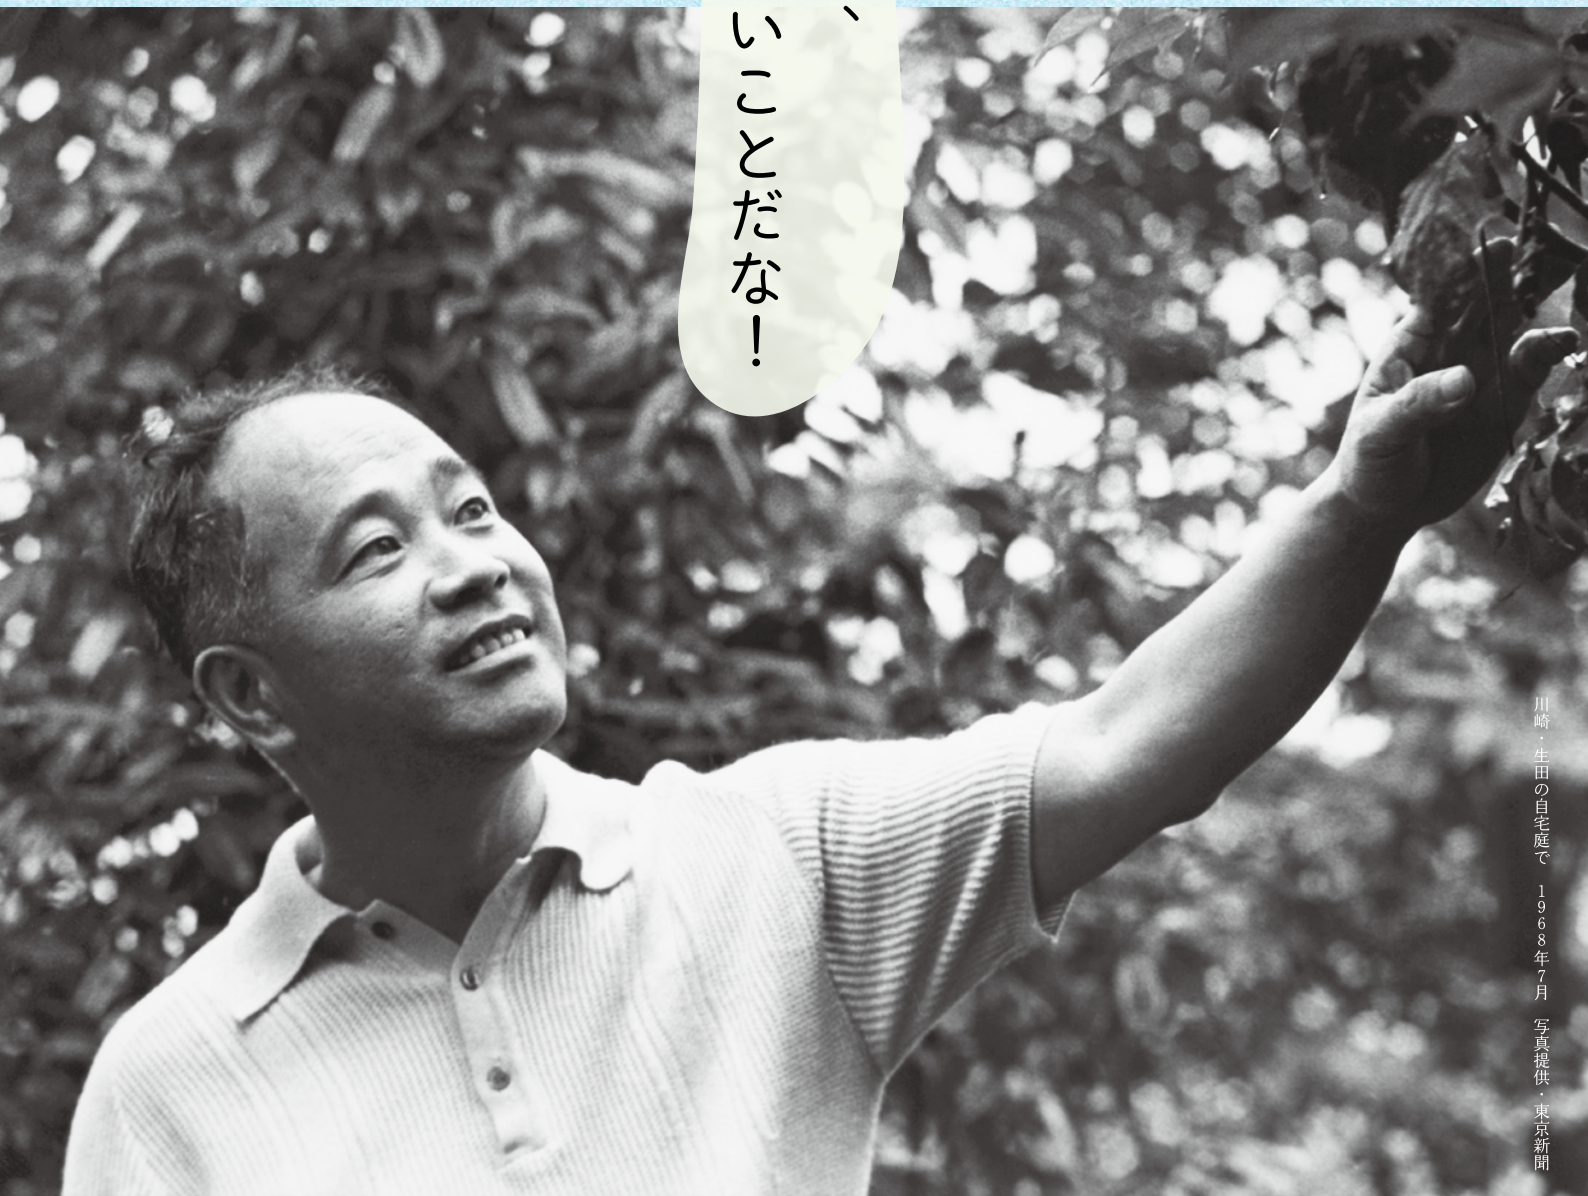 、
いことだな！
川崎・生田の自宅庭で　1968年7月　写真提供・東京新聞